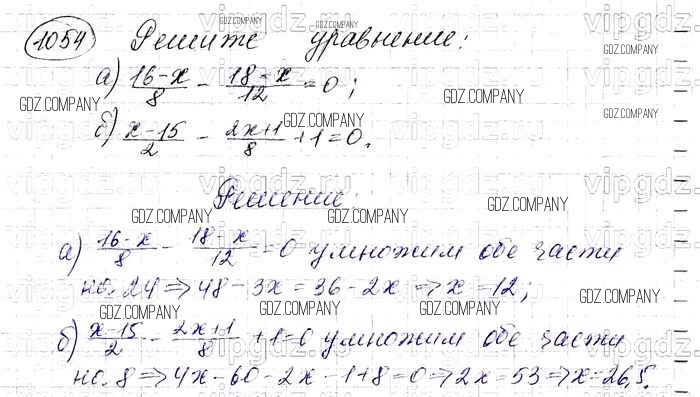 1054 Решите уравнение:
а) (16-x)/8 - (18-x)/12 = 0;
б) (x-15)/2 - (2x+1)/8 + 1 = 0.
Решение.
а) (16-x)/8 - (18-x)/12 = 0 умножим обе части
на 24 ⇒ 48 - 3x = 36 - 2x ⇒ x = 12;
б) (x-15)/2 - (2x+1)/8 + 1 = 0 умножим обе части
на 8 ⇒ 4x - 60 - 2x - 1 + 8 = 0 ⇒ 2x = 53 ⇒ x = 26,5.
GDZ.COMPANY
GDZ.COMPANY
GDZ.COMPANY
GDZ.COMPANY
GDZ.COMPANY
GDZ.COMPANY
GDZ.COMPANY
GDZ.COMPANY
GDZ.COMPANY
GDZ.COMPANY
GDZ.COMPANY
vipgdz.ru